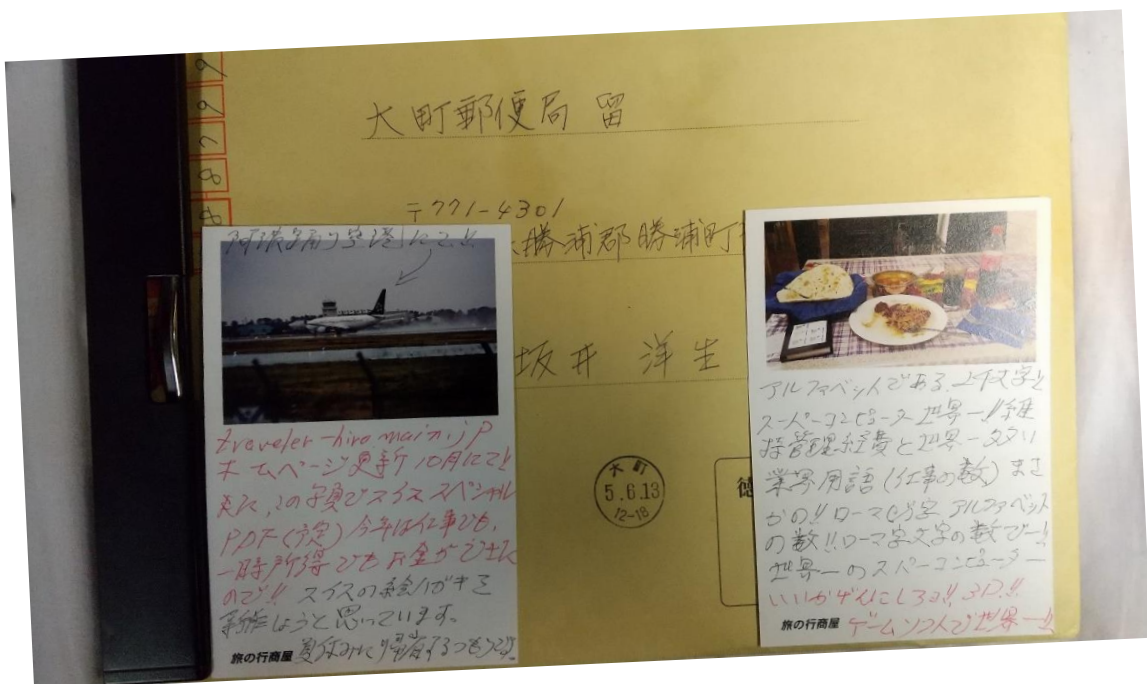 9
9
7
8
8
大町郵便局 留
〒771-4301
勝浦郡勝浦町
坂井 洋生
大町
5.6.13
12-18
徳
にて!!
traveler-hiro.main.jp
ホームページ更新 10月にて!!
この写真でスイス スペシャル
PDF(予定) 今年は仕事でも、
一時所得でもお金ができた
ので!! スイスの絵ハガキを
新作しようと思っています。
夏休みに帰省するつもりです。
旅の行商屋
アルファベットである、上位文字!!
スーパーコンピューター世界一!!維
持管理経費と世界一
業界用語(仕事の数)まさ
かの!!ローマ字 アルファベット
の数!!ローマ字文字の数で一!!
世界一のスパーコンピューター
いいかげんにしろ!! 3D!!
旅の行商屋
ゲームソフトで世界一!!